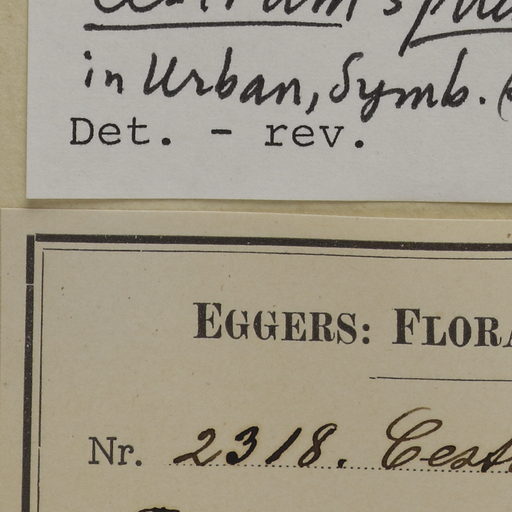 in Urban, Symb.
Det. - rev.
EGGERS: FLORA
Nr. 2318. Cest